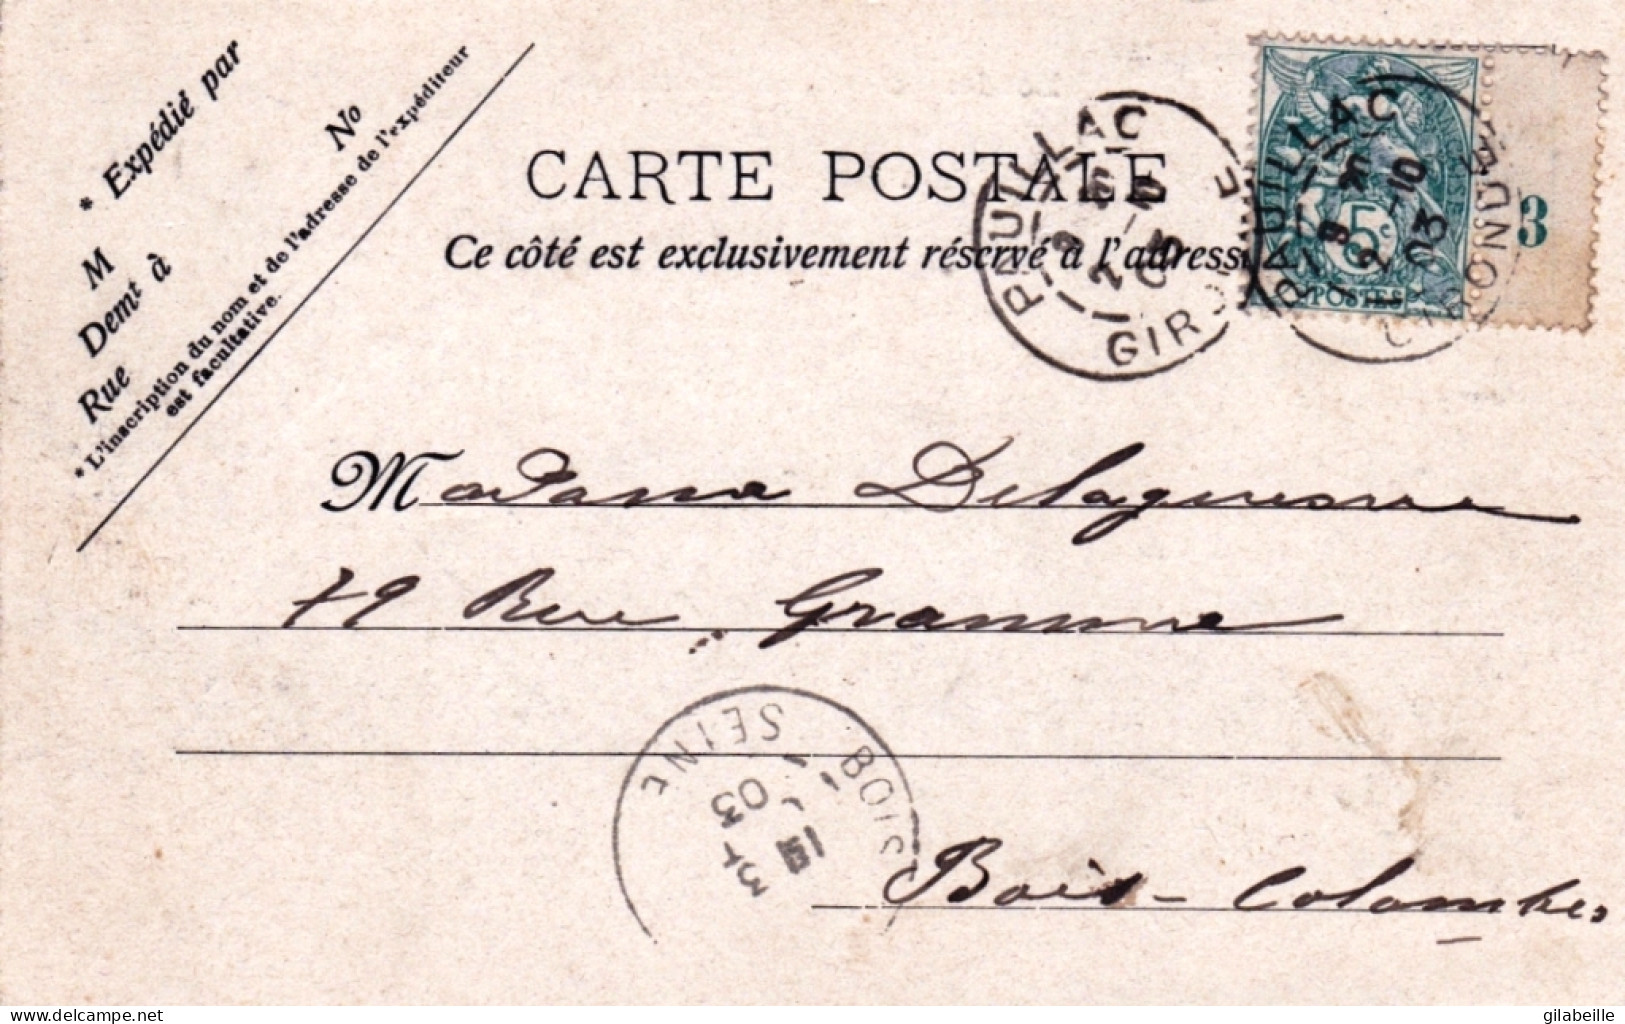 * Expédié par
M
Demt à
Rue
No
* L'inscription du nom et de l'adresse de l'expéditeur
est facultative.
CARTE POSTALE
Ce côté est exclusivement réservé à l'adresse
PAUILLAC
GIRONDE
PAUILLAC
GIRONDE
03
5c
POSTES
3
Madame Delaguesne
79 Rue Gramme
SEINE
BOIS
03
Bois-Colombes
delcampe.net
gilabeille